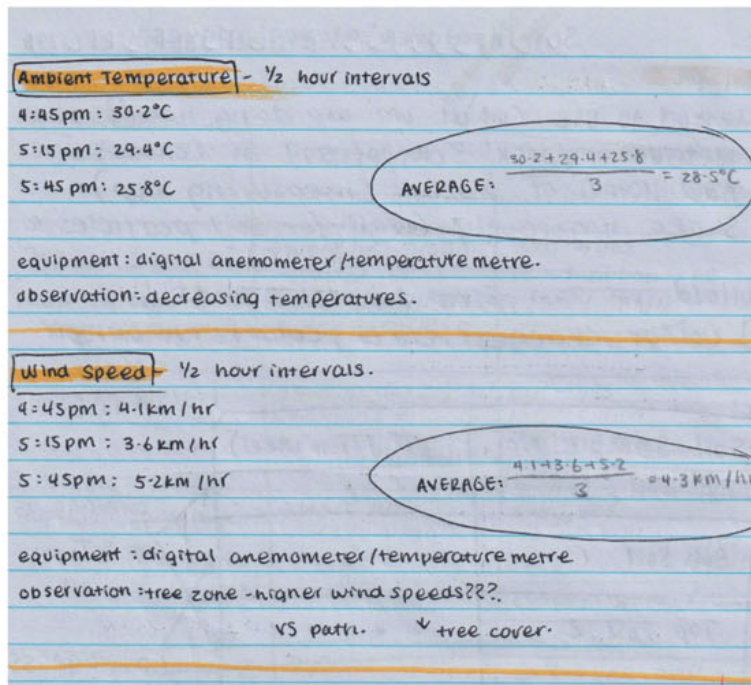 Ambient Temperature - 1/2 hour intervals
4:45pm: 30.2°C
5:15 pm: 29.4°C
5:45 pm: 25.8°C
AVERAGE: 30.2+29.4+25.8
3
= 28.5°C
equipment: digital anemometer/temperature metre.
observation: decreasing temperatures.
Wind Speed - 1/2 hour intervals.
4:45pm: 4.1km/hr
5:15pm: 3.6km/hr
5:45pm: 5.2km/hr
AVERAGE: 4.1+3.6+5.2
3
=4.3km/hr
equipment: digital anemometer/temperature metre
observation: tree zone - higher wind speeds???.
vs path. ↓ tree cover.